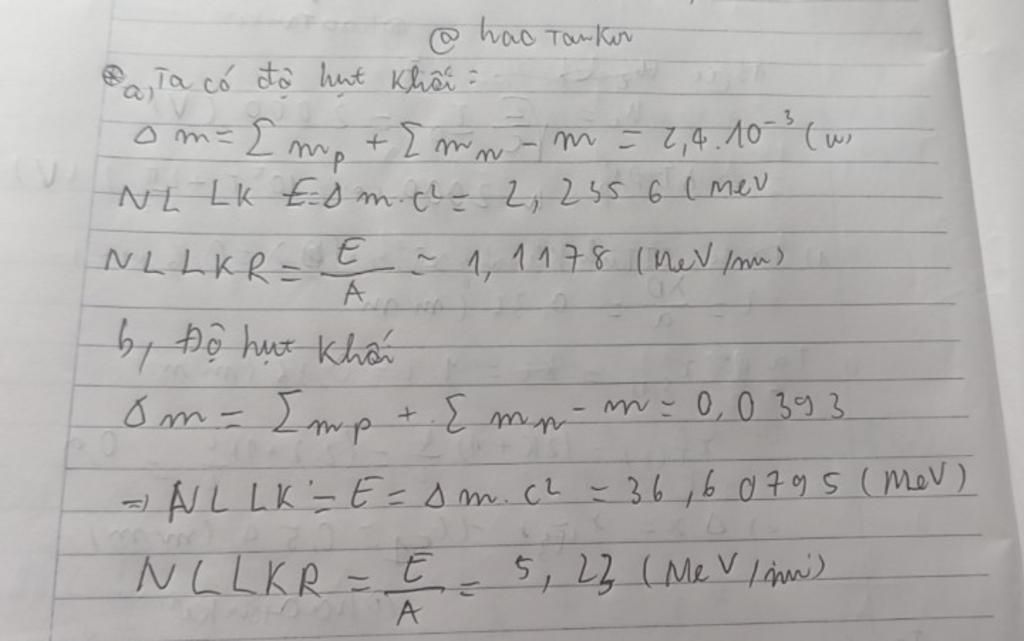 @ haoTanKun
⊕ a, Ta có độ hụt khối:
Δm = Σ mp + Σ mn - m = 2,4.10⁻³ (u)
NL LK E = Δm.c² = 2,2356 (MeV
NLLKR = E/A ≈ 1,1178 (MeV/nu)
b, Độ hụt khối
Δm = Σ mp + Σ mn - m = 0,0393
=> NLLK = E = Δm.c² = 36,60795 (MeV)
NLLKR = E/A = 5,23 (MeV/nu)